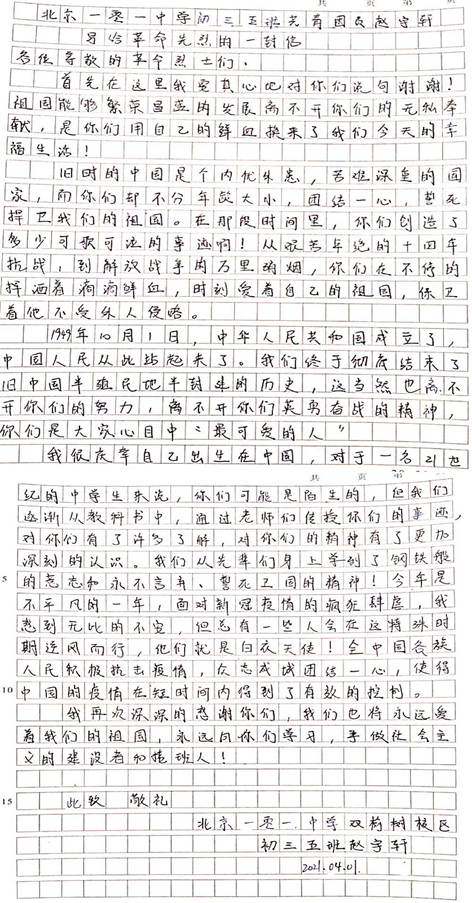 共 页 第
北京一零一中学初三五班共青团员赵宇轩
写给革命先烈的一封信
各位尊敬的革命烈士们,
首先在这里我要真心地对你们说句谢谢!
祖国能够繁荣昌盛的发展离不开你们的无私奉
献,是你们用自己的鲜血换来了我们今天的幸
福生活!
旧时的中国是个内忧外患,苦难深重的国
家,而你们却不分年龄大小,团结一心,誓死
捍卫我们的祖国。在那段时间里,你们创造了
多少可歌可泣的事迹啊!从艰苦卓绝的十四年
抗战,到解放战争的万里硝烟,你们在不停的
挥洒着滴滴鲜血,时刻爱着自己的祖国,保卫
着他不受外人侵略。
1949年10月1日,中华人民共和国成立了,
中国人民从此站起来了。我们终于彻底结束了
旧中国半殖民地半封建的历史,这当然也离不
开你们的努力,离不开你们英勇奋战的精神,
你们是大家心目中"最可爱的人"
我很庆幸自己出生在中国,对于一名21世
共 页 第
纪的中学生来说,你们可能是陌生的,但我们
逐渐从教科书中,通过老师们传授你们的事迹,
对你们有了许多了解,对你们的精神有了更加
深刻的认识。我们从先辈们身上学到了钢铁般
5 的意志和永不言弃、誓死卫国的精神!今年是
不平凡的一年,面对新冠疫情的疯狂肆虐,我
感到无比的不安,但总有一些人会在这特殊时
期逆风而行,他们就是白衣天使!全中国各族
人民积极抗击疫情,众志成城团结一心,使得
10 中国的疫情在短时间内得到了有效的控制。
我再次深深的感谢你们,我们也将永远爱
着我们的祖国,永远向你们学习,争做社会主
义的建设者和接班人!
15 此致 敬礼
北京一零一中学双榆树校区
初三五班赵宇轩
2021.04.01.